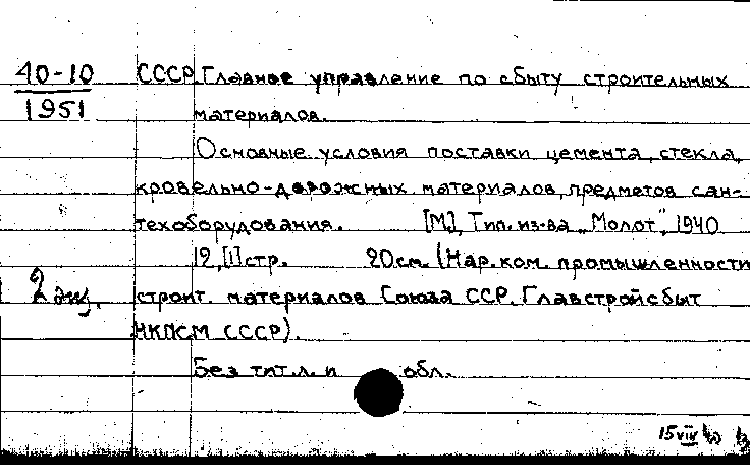 40-10
1951
СССР. Главное управление по сбыту строительных
материалов.
Основные условия поставки цемента, стекла,
кровельно-дорожных материалов, предметов сан-
техоборудования. [М], Тип. из-ва „Молот", 1940
12, [1] стр. 20см. (Нар. ком. промышленности
2 экз.
строит. материалов Союза ССР. Главстройсбыт
НКПСМ СССР).
Без тит. л. и обл.
15 VIII 40